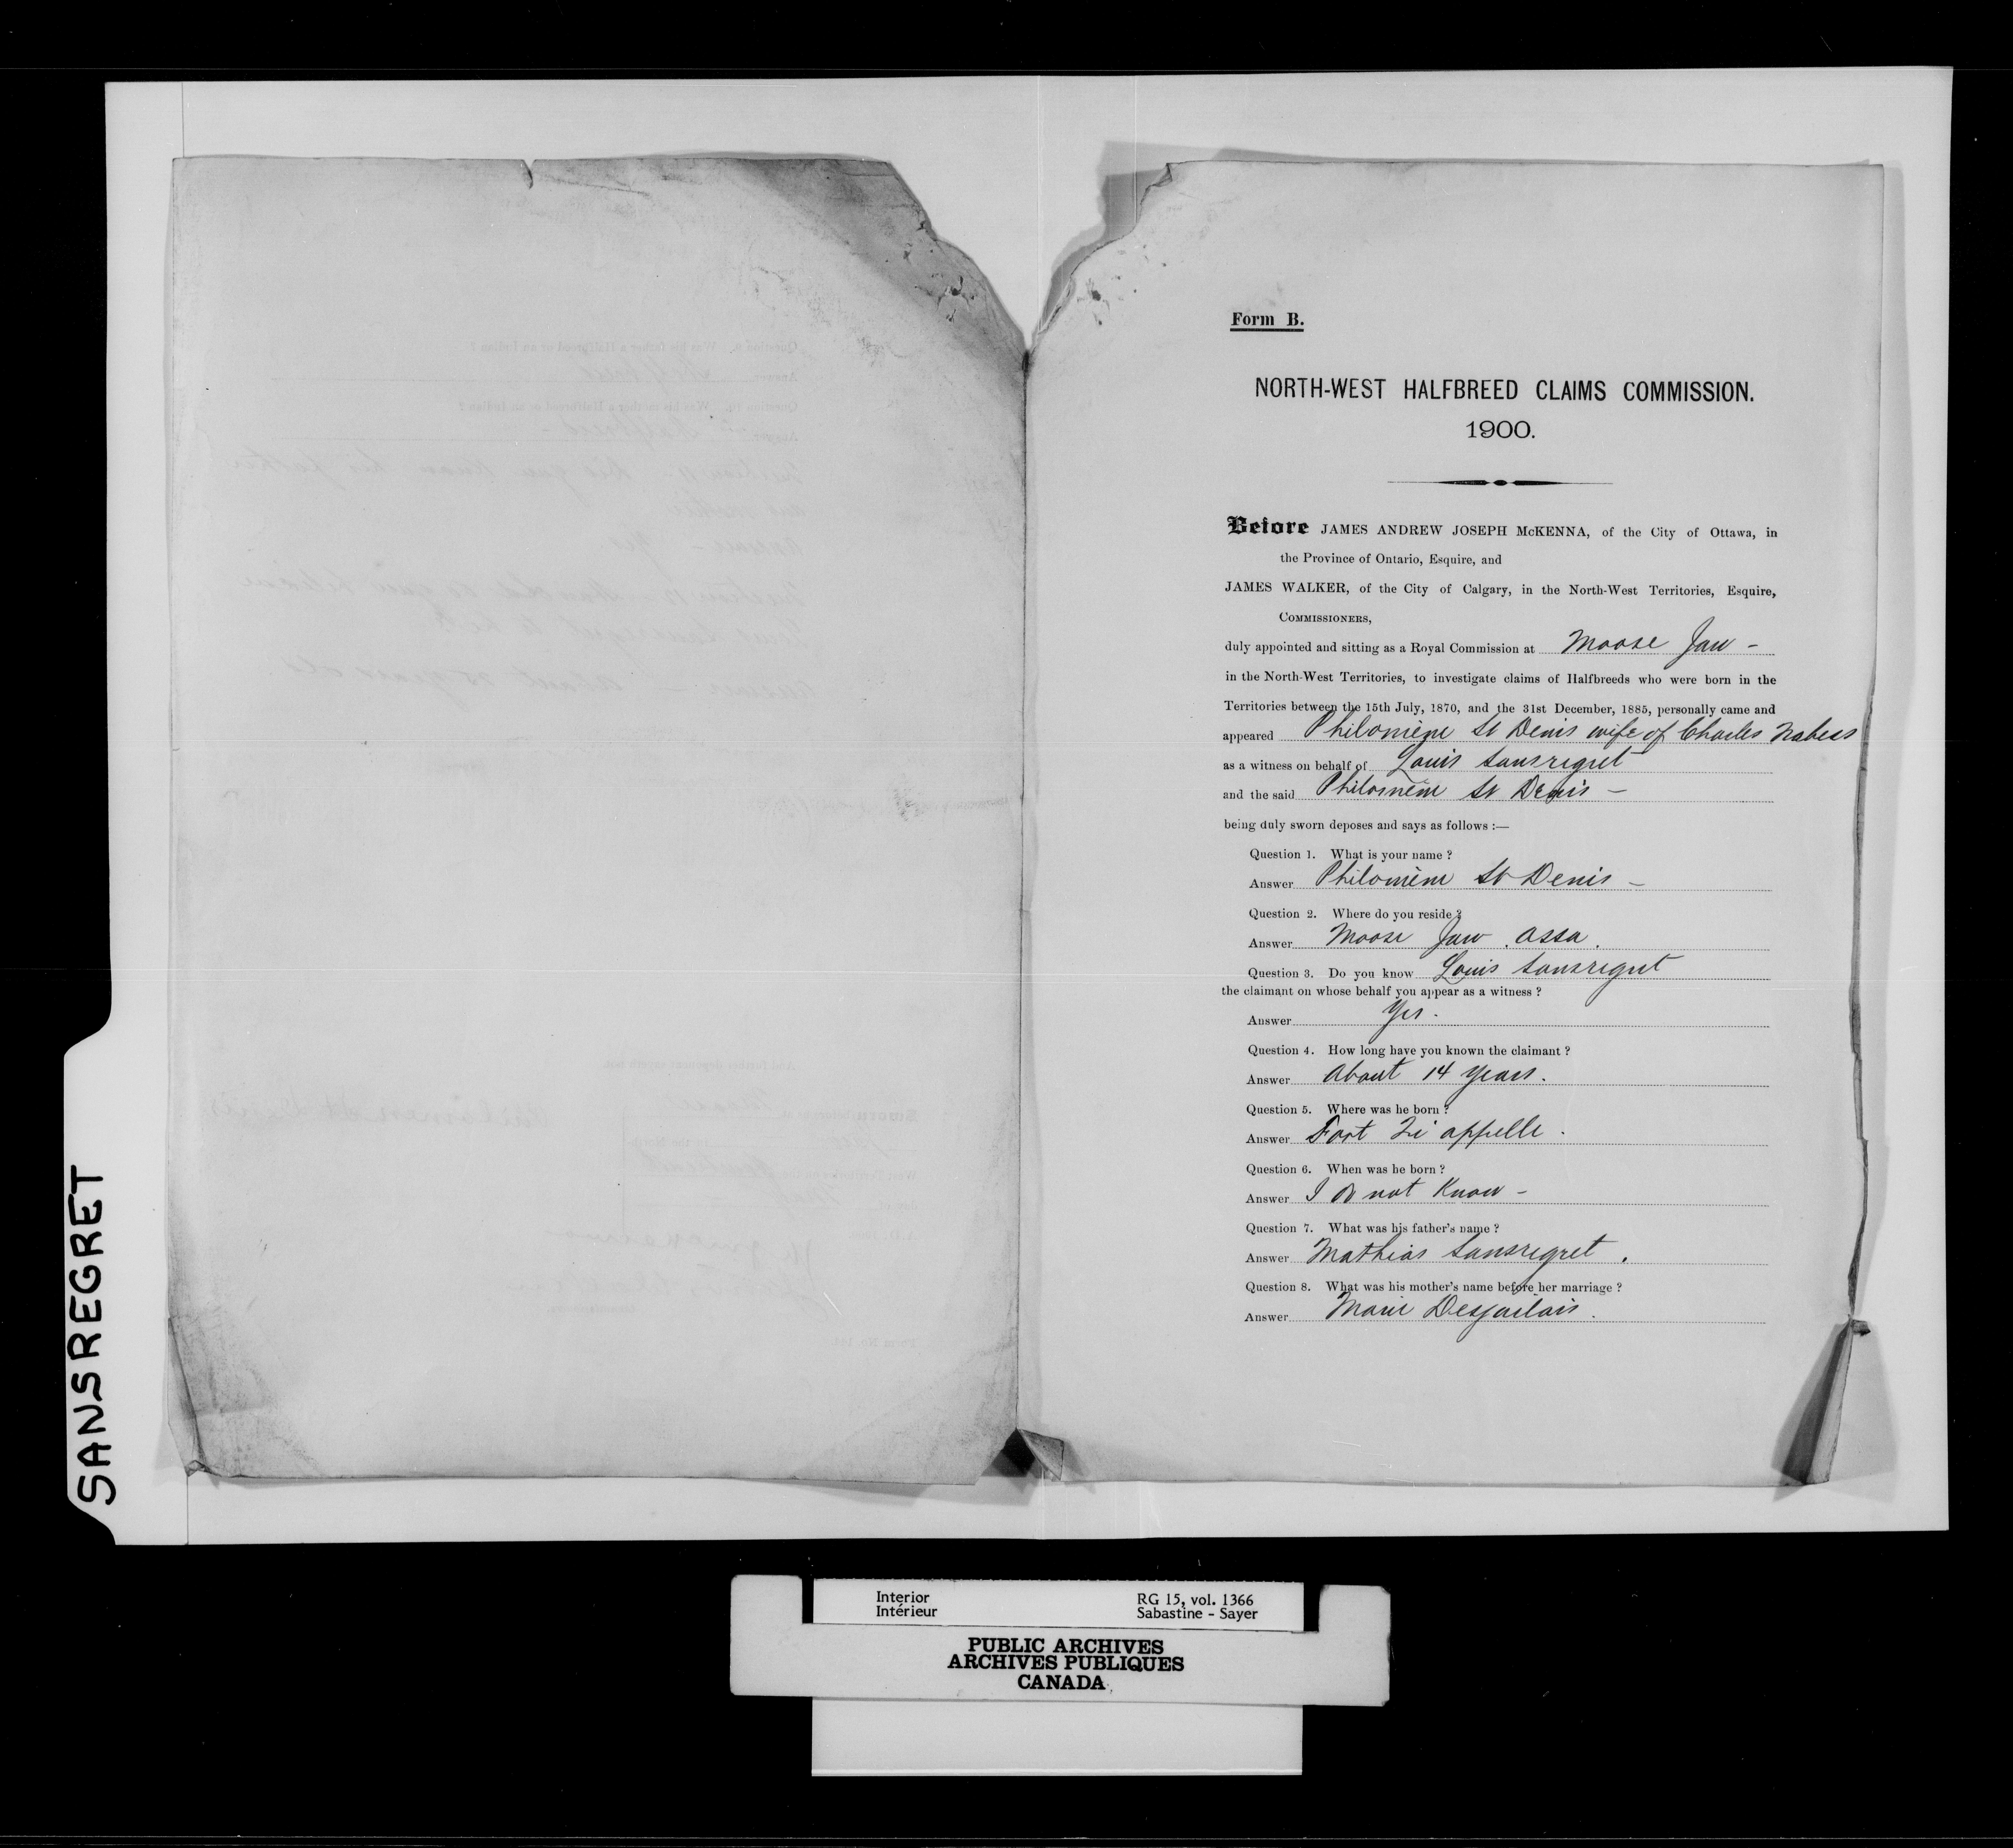 Form B.
NORTH-WEST HALFBREED CLAIMS COMMISSION.
1900.
Before JAMES ANDREW JOSEPH McKENNA, of the City of Ottawa, in
the Province of Ontario, Esquire, and
JAMES WALKER, of the City of Calgary, in the North-West Territories, Esquire,
COMMISSIONERS,
duly appointed and sitting as a Royal Commission at Moose Jaw -
in the North-West Territories, to investigate claims of Halfbreeds who were born in the
Territories between the 15th July, 1870, and the 31st December, 1885, personally came and
appeared Philomène St Denis wife of Charles Nabess
as a witness on behalf of Louis Sansregret
and the said Philomène St Denis -
being duly sworn deposes and says as follows :—
Question 1. What is your name ?
Answer Philomène St Denis -
Question 2. Where do you reside ?
Answer Moose Jaw . Assa .
Question 3. Do you know Louis Sansregret
the claimant on whose behalf you appear as a witness ?
Answer Yes .
Question 4. How long have you known the claimant ?
Answer About 14 years .
Question 5. Where was he born ?
Answer Fort Qu'appelle .
Question 6. When was he born ?
Answer I do not know -
Question 7. What was his father's name ?
Answer Mathias Sansregret .
Question 8. What was his mother's name before her marriage ?
Answer Marie Desjarlais .
SANSREGRET
Interior RG 15, vol. 1366
Intérieur Sabastine - Sayer
PUBLIC ARCHIVES
ARCHIVES PUBLIQUES
CANADA